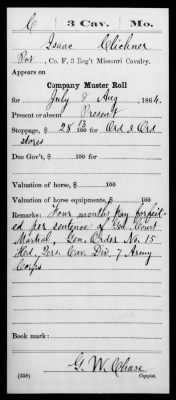 C | 3 Cav. | Mo.
Isaac Clickner
Pvt, Co. F, 3 Reg't Missouri Cavalry.
Appears on
Company Muster Roll
for July & Aug, 1864.
Present or absent Present
Stoppage, $ 28 100 for Ord & Ord
stores
Due Gov't, $ 100 for
Valuation of horse, $ 100
Valuation of horse equipments, $ 100
Remarks: Four months pay forfeit-
ed per sentence of Gen. Court
Martial, Gen. Order No. 15
Hed. Qrs. Cav. Div. 7 Army
Corps
Book mark:
G. W. Chase
(358) Copyist.